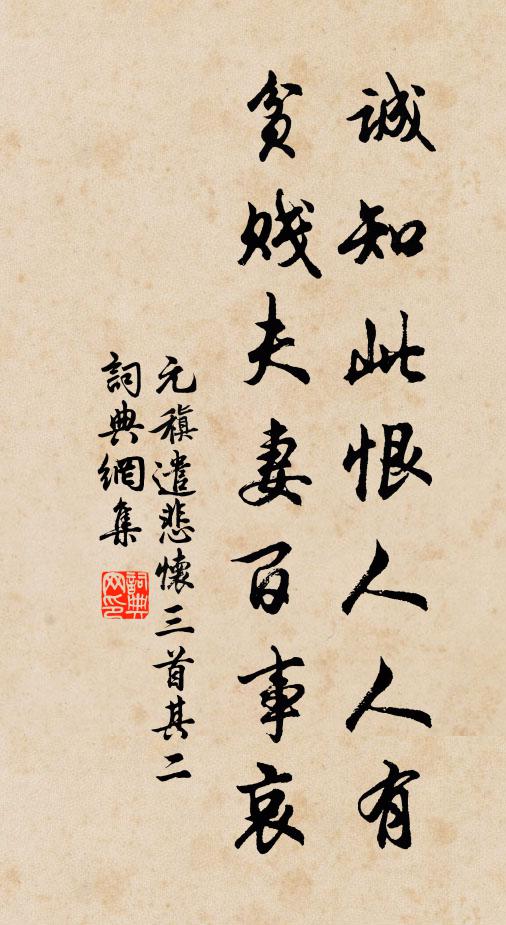 誠知此恨人人有
貧賤夫妻百事哀
元稹遣悲懷三首其二
詞典網集
詞典網印